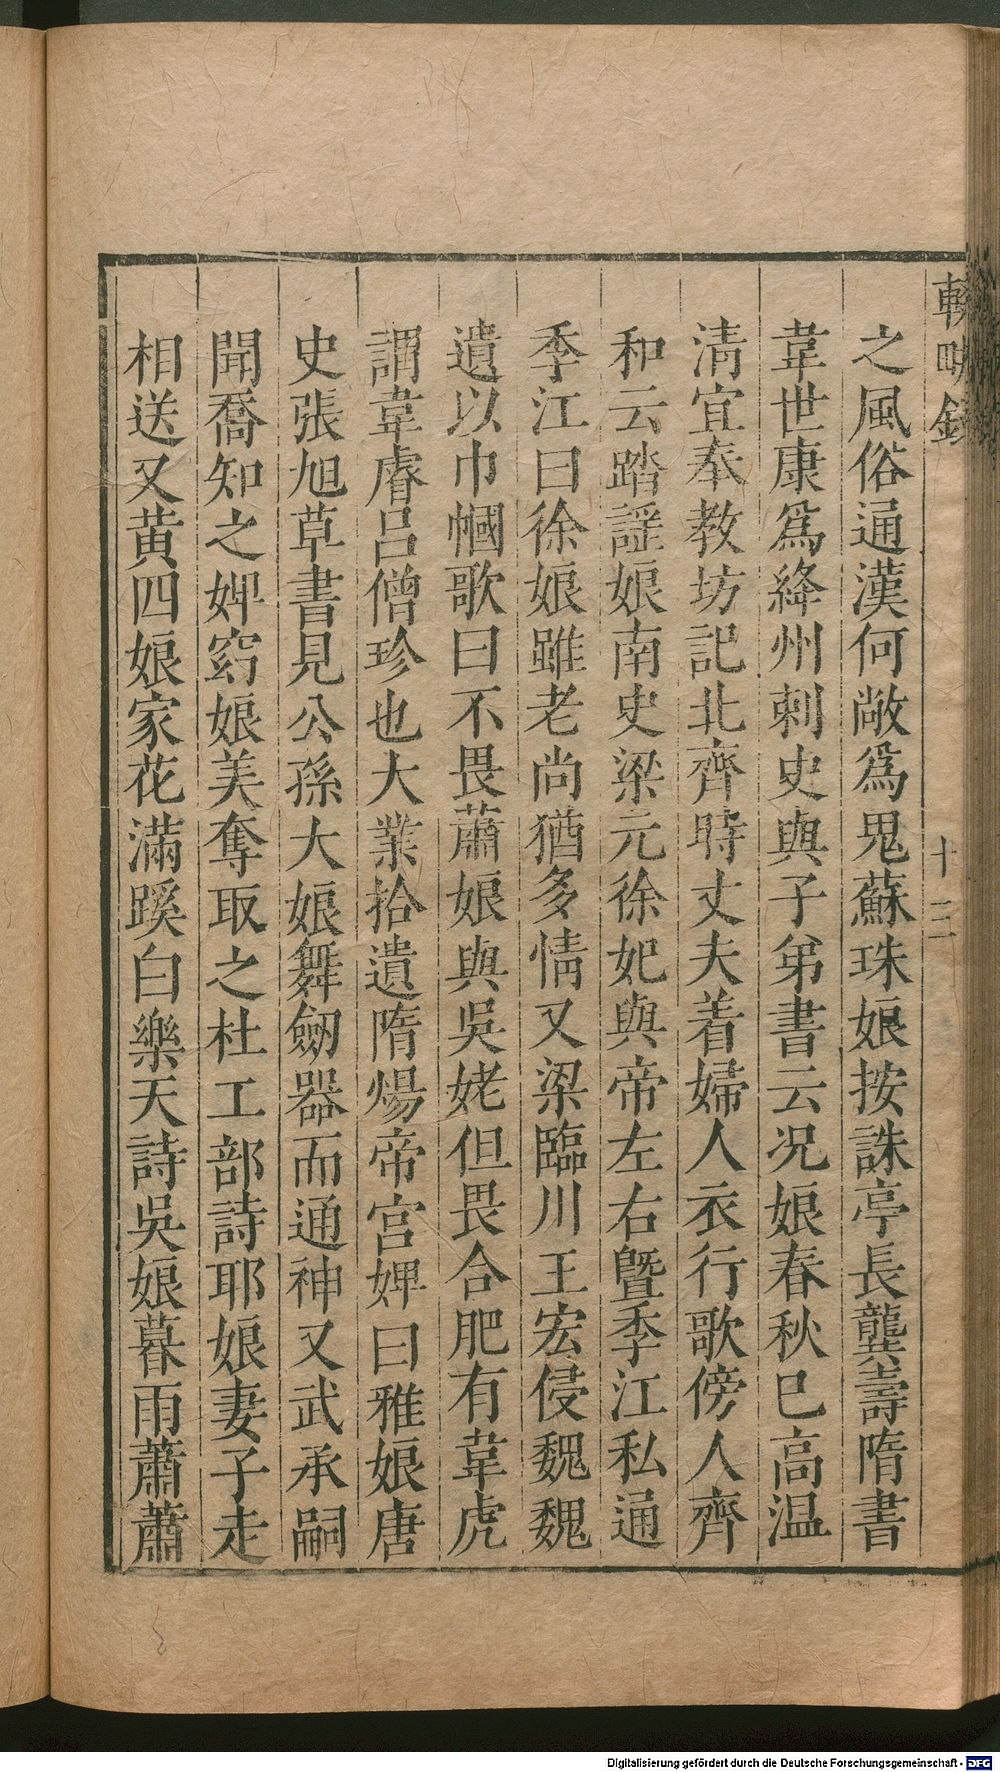 輟畊錄
十二
之風俗通漢何敞爲鬼蘇珠娘按誅亭長龔壽隋書
韋世康爲絳州刺史與子弟書云况娘春秋已高温
淸宜奉教坊記北齊時丈夫着婦人衣行歌傍人齊
和云踏謡娘南史梁元徐妃與帝左右曁季江私通
季江曰徐娘雖老尚猶多情又梁臨川王宏侵魏魏
遺以巾幗歌曰不畏蕭娘與吳姥但畏合肥有韋虎
謂韋睿呂僧珍也大業拾遺隋煬帝宮婢曰雅娘唐
史張旭草書見公孫大娘舞劒器而通神又武承嗣
聞喬知之婢窈娘美奪取之杜工部詩耶娘妻子走
相送又黃四娘家花滿蹊白樂天詩吳娘暮雨蕭蕭
Digitalisierung gefördert durch die Deutsche Forschungsgemeinschaft - DFG